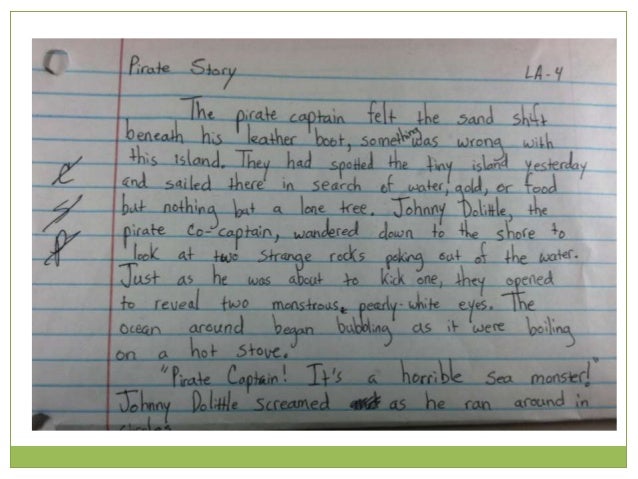 Pirate Story LA-4
The pirate captain felt the sand shift
beneath his leather boot, something was wrong with
this island. They had spotted the tiny island yesterday
and sailed there in search of water, gold, or food
but nothing but a lone tree. Johnny Dolittle, the
pirate co-captain, wandered down to the shore to
look at two strange rocks poking out of the water.
Just as he was about to kick one, they opened
to reveal two monstrous, pearly-white eyes. The
ocean around began bubbling as it were boiling
on a hot stove.
"Pirate Captain! It's a horrible sea monster!"
Johnny Dolittle screamed as he ran around in